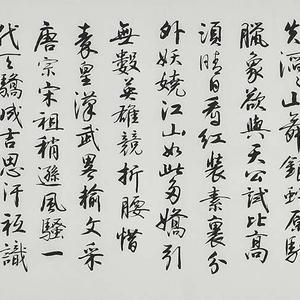 失滔滔山舞銀蛇原馳
臘象欲與天公試比高
須晴日看紅裝素裹分
外妖嬈江山如此多嬌引
無數英雄競折腰惜
秦皇漢武畧輸文采
唐宗宋祖稍遜風騷一
代天驕成吉思汗祇識